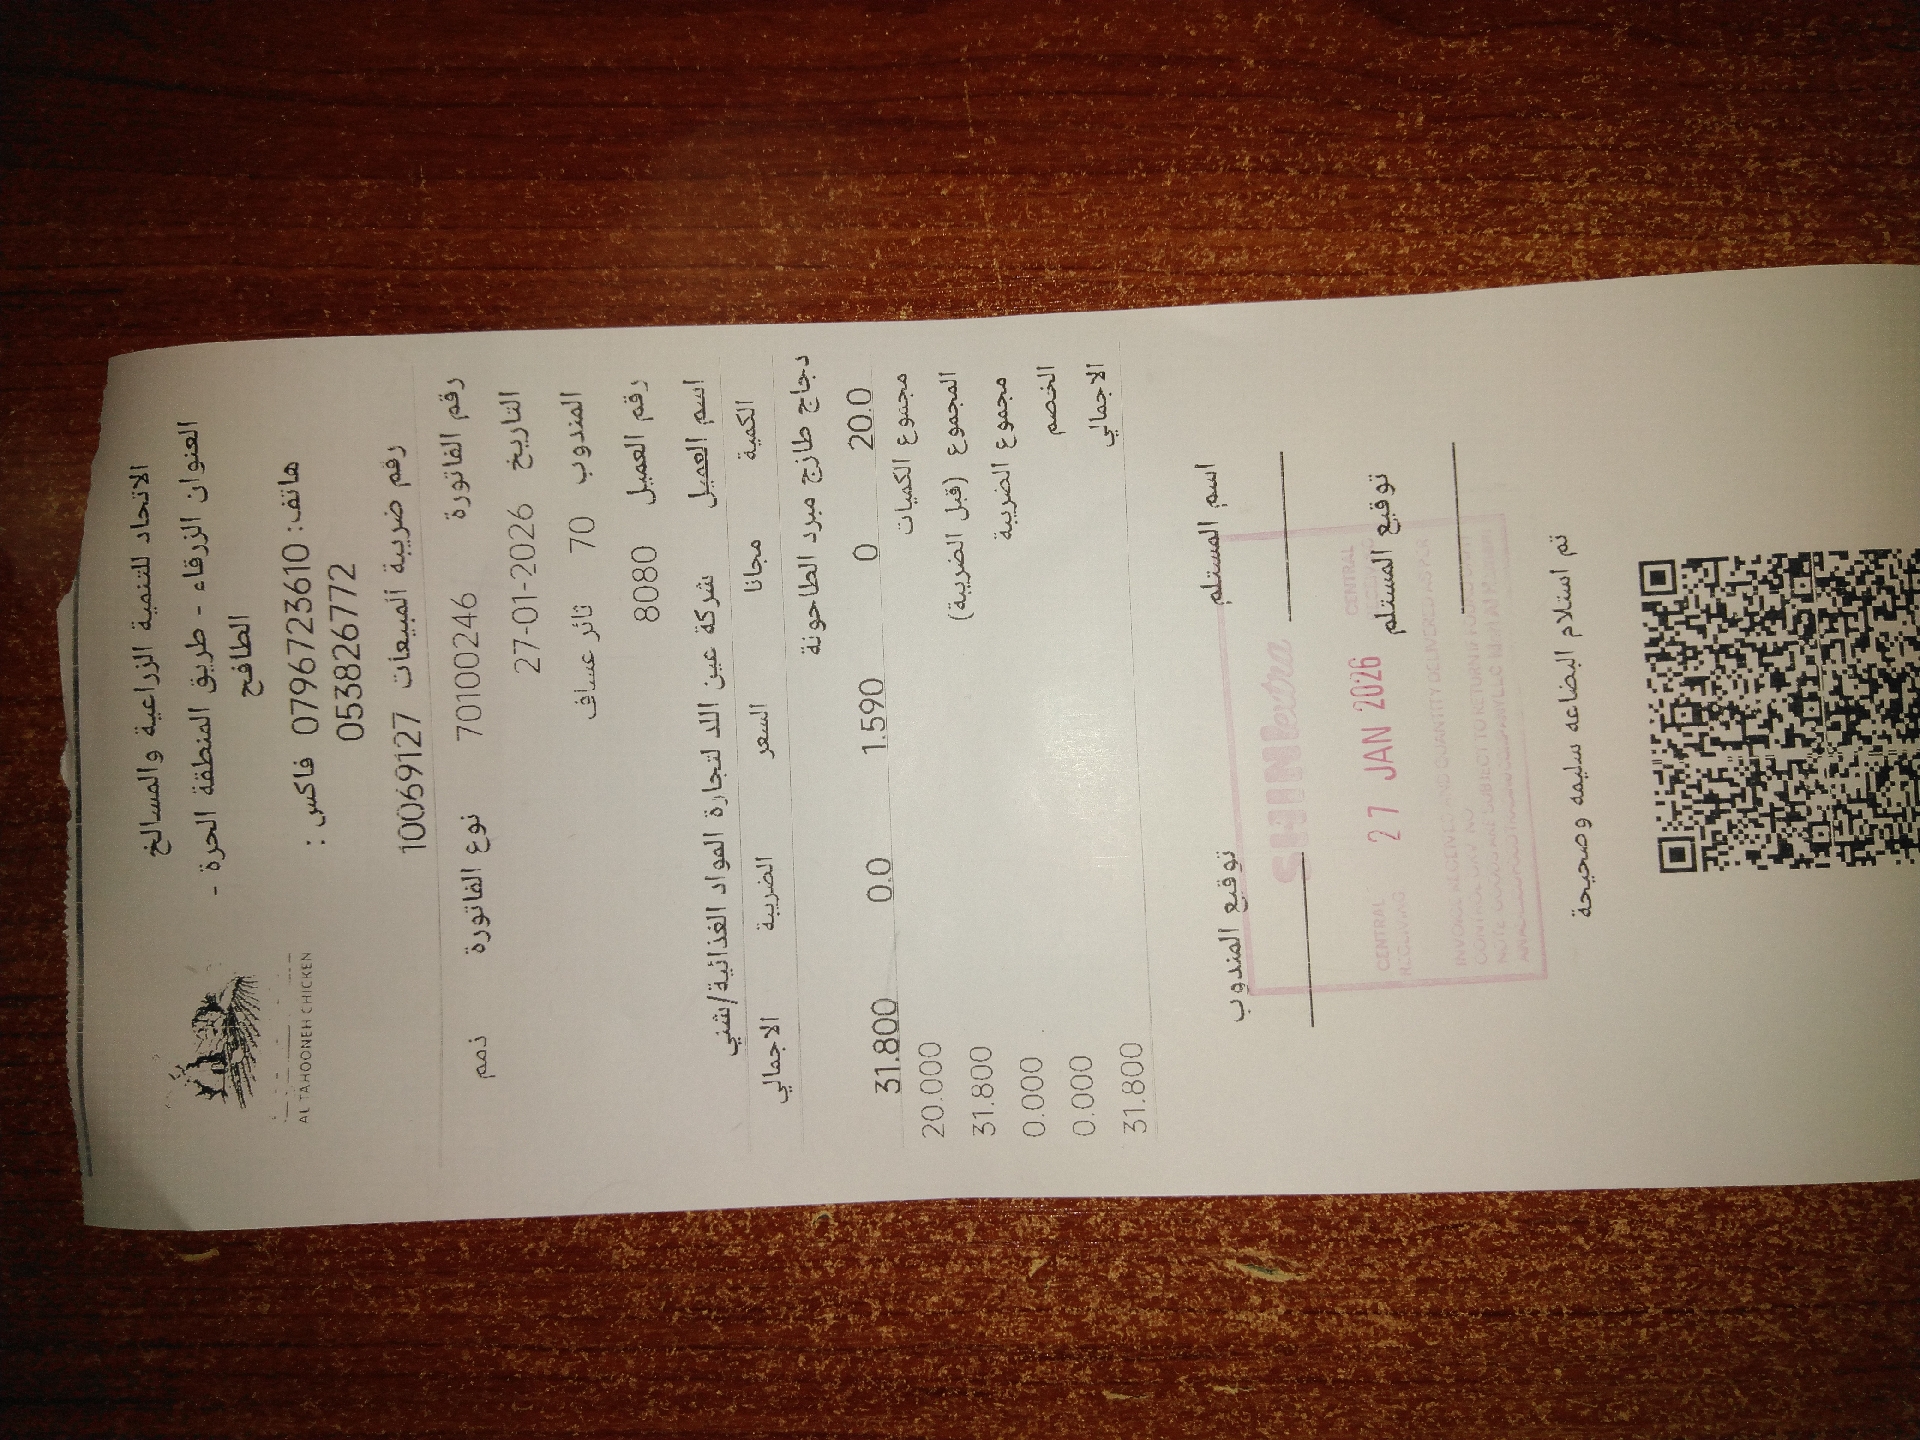 AL TAHOONEH CHICKEN
الاتحاد للتنمية الزراعية والمسالخ
العنوان الزرقاء - طريق المنطقة الحرة -
الطافح
هاتف: 0796723610 فاكس :
053826772
رقم ضريبة المبيعات 10069127
رقم الفاتورة 70100246 نوع الفاتورة ذمم
التاريخ 27-01-2026
المندوب 70 ثائر عساف
رقم العميل 8080
اسم العميل شركة عين اللد لتجارة المواد الغذائية/شني
الكمية مجانا السعر الضريبة الاجمالي
دجاج طازج مبرد الطاحونة
20.0 0 1.590 0.0 31.800
مجموع الكميات 20.000
المجموع (قبل الضريبة) 31.800
مجموع الضريبة 0.000
الخصم 0.000
الاجمالي 31.800
اسم المستلم توقيع المندوب
SHINI extra
توقيع المستلم
CENTRAL
RECEIVING
27 JAN 2026
CENTRAL
تم استلام البضاعه سليمه وصحيحة